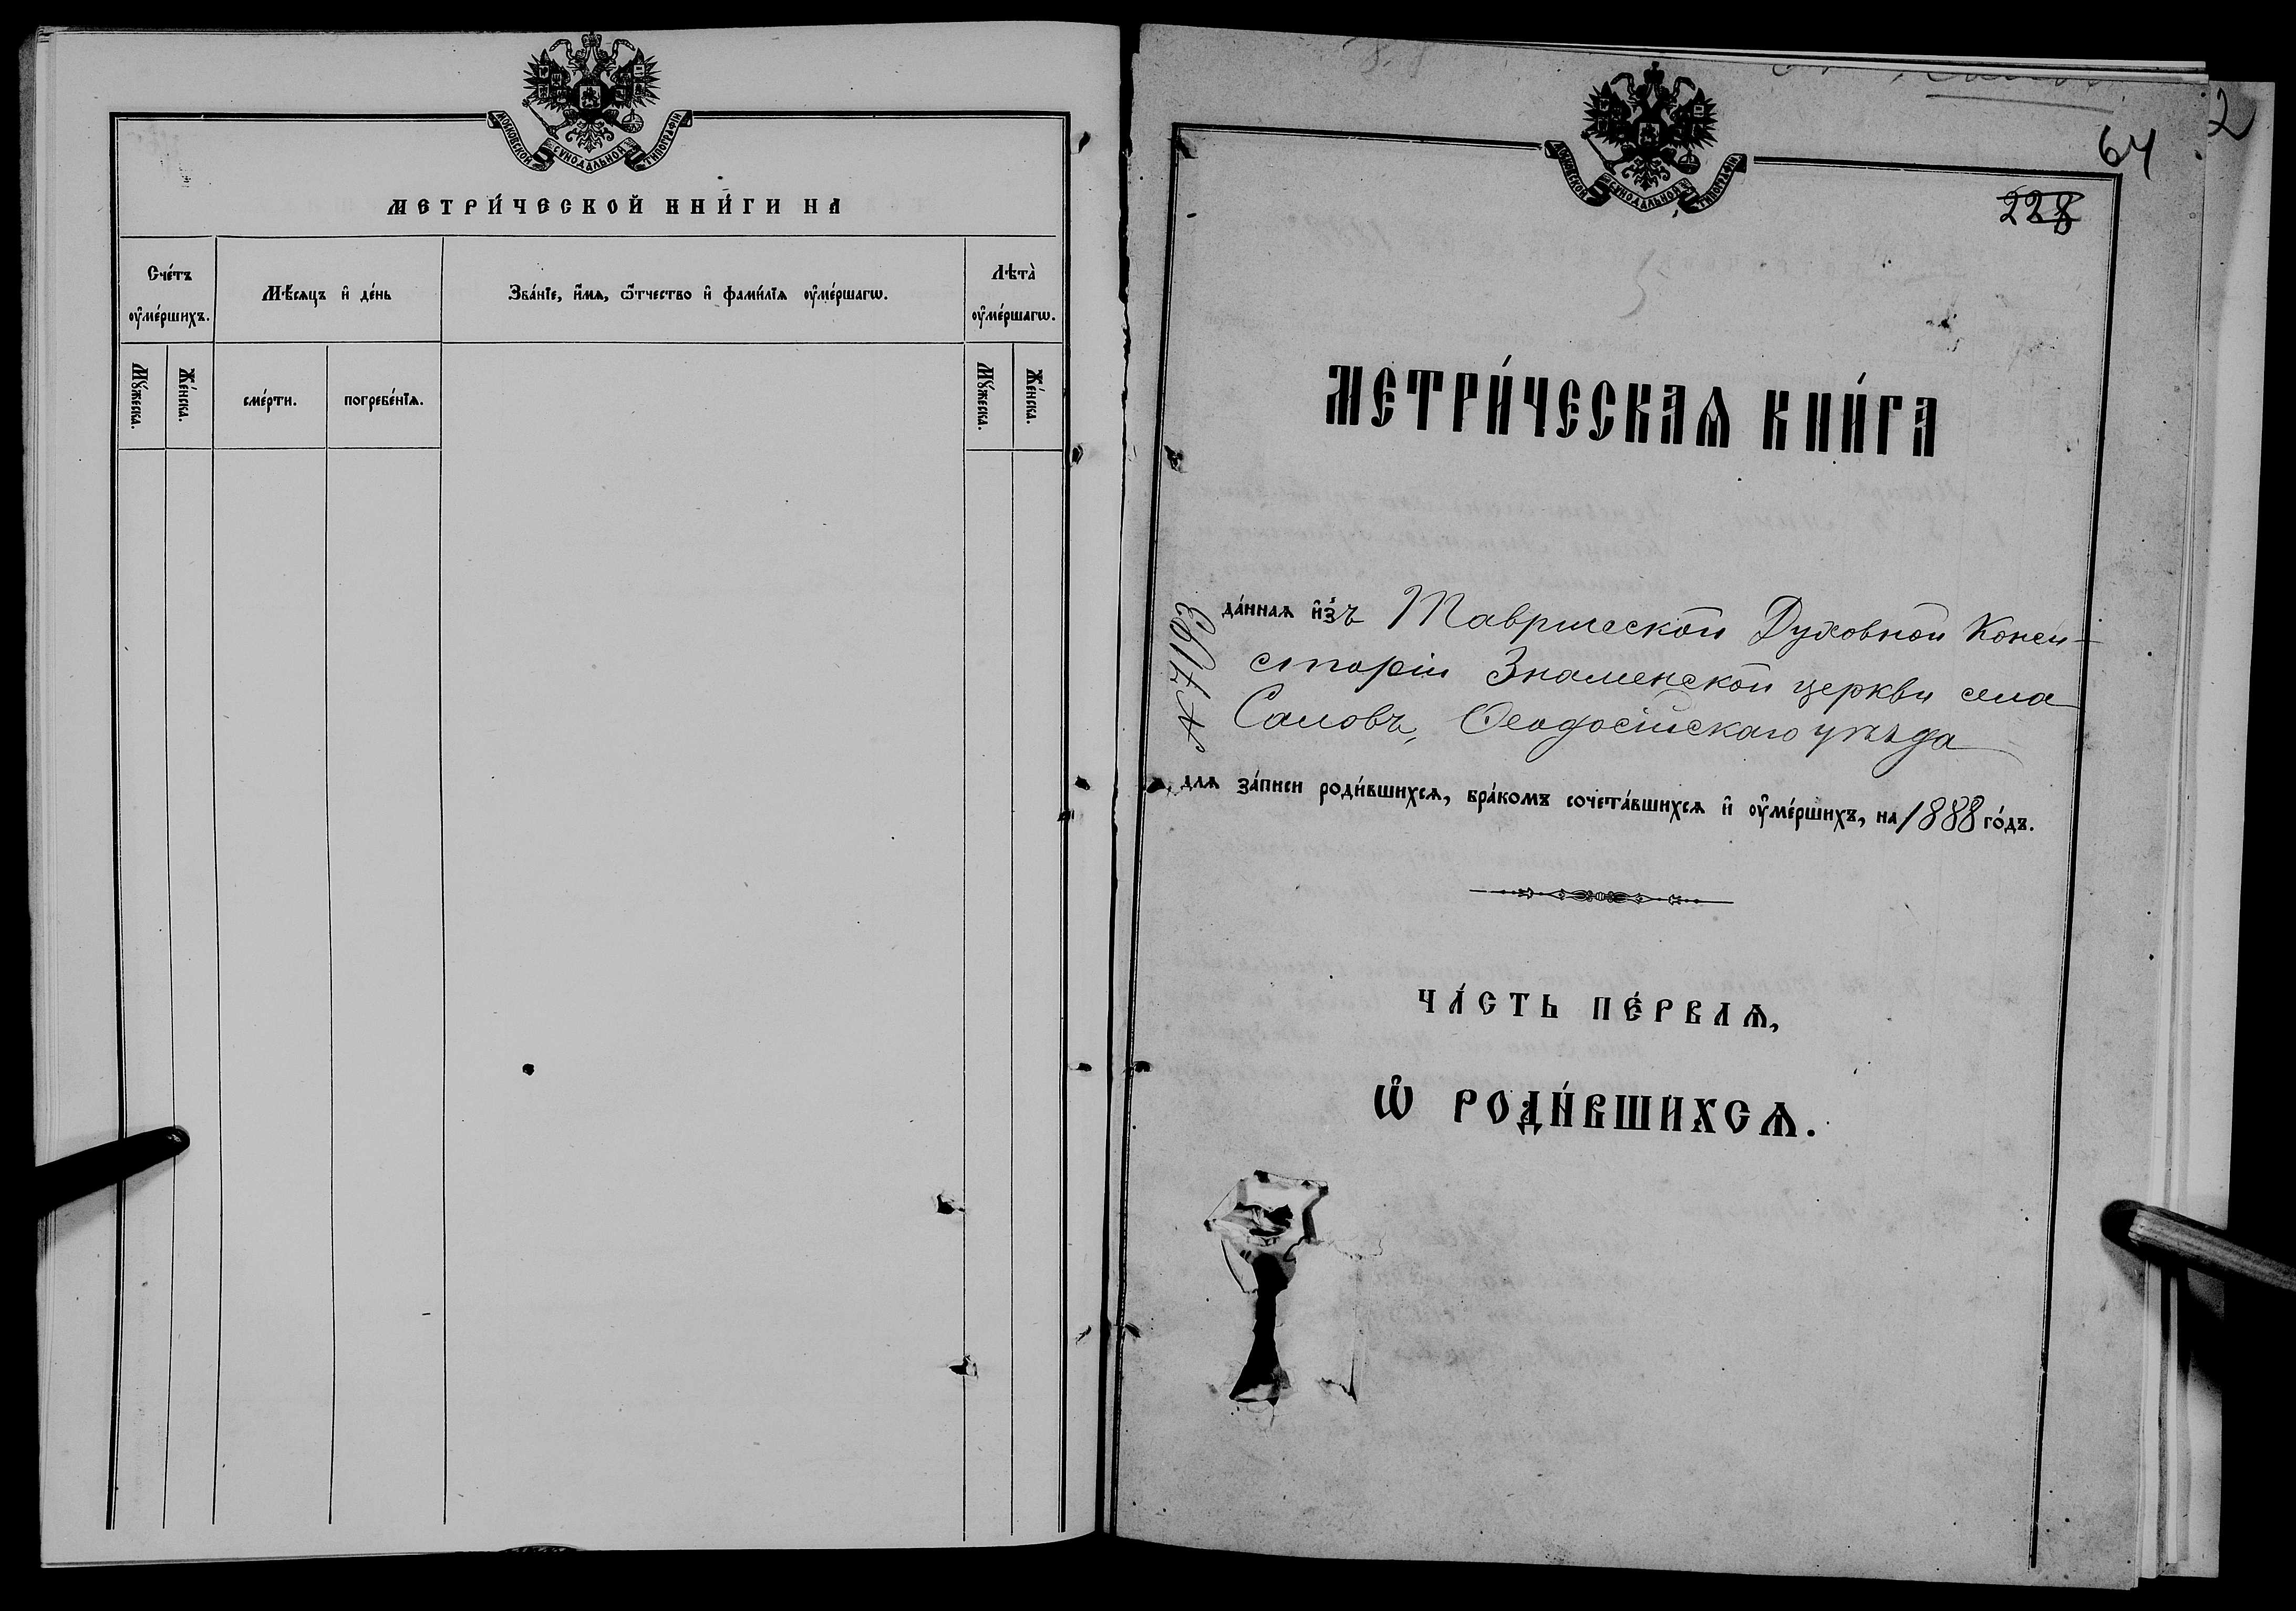 МОСКОВСКОЙ СУНОДАЛЬНОЙ ТИПОГРАФІИ
МЕТРИ́ЧЕСКОЙ КНИ́ГИ НА
Сче́тъ ᲂу҆ме́ршихъ.
Мѣ́сяцъ и҆ де́нь
Зва́нїе, и҆́мѧ, ѻ҆́тчество и҆ фами́лїѧ ᲂу҆ме́ршагѡ.
Лѣта̀ ᲂу҆ме́ршагѡ.
Мꙋ́жеска.
Же́нска.
сме́рти.
погребе́нїѧ.
Мꙋ́жеска.
Же́нска.
МОСКОВСКОЙ СУНОДАЛЬНОЙ ТИПОГРАФІИ
2
64
228
МЕТРИ́ЧЕСКАѦ КНИ́ГА
да́ннаѧ и҆з̾ Таврической Духовной Конси-
сторіи Знаменской церкви села
Саловъ, Ѳеодосійскаго уѣзда
№ 7193
длѧ за́писи роди́вшихсѧ, бра́комъ сочета́вшихсѧ и҆ ᲂу҆ме́ршихъ, на 1888 го́дъ.
ЧА́СТЬ ПЕ́РВАѦ,
Ѡ҆ РОДИ́ВШИХСѦ.